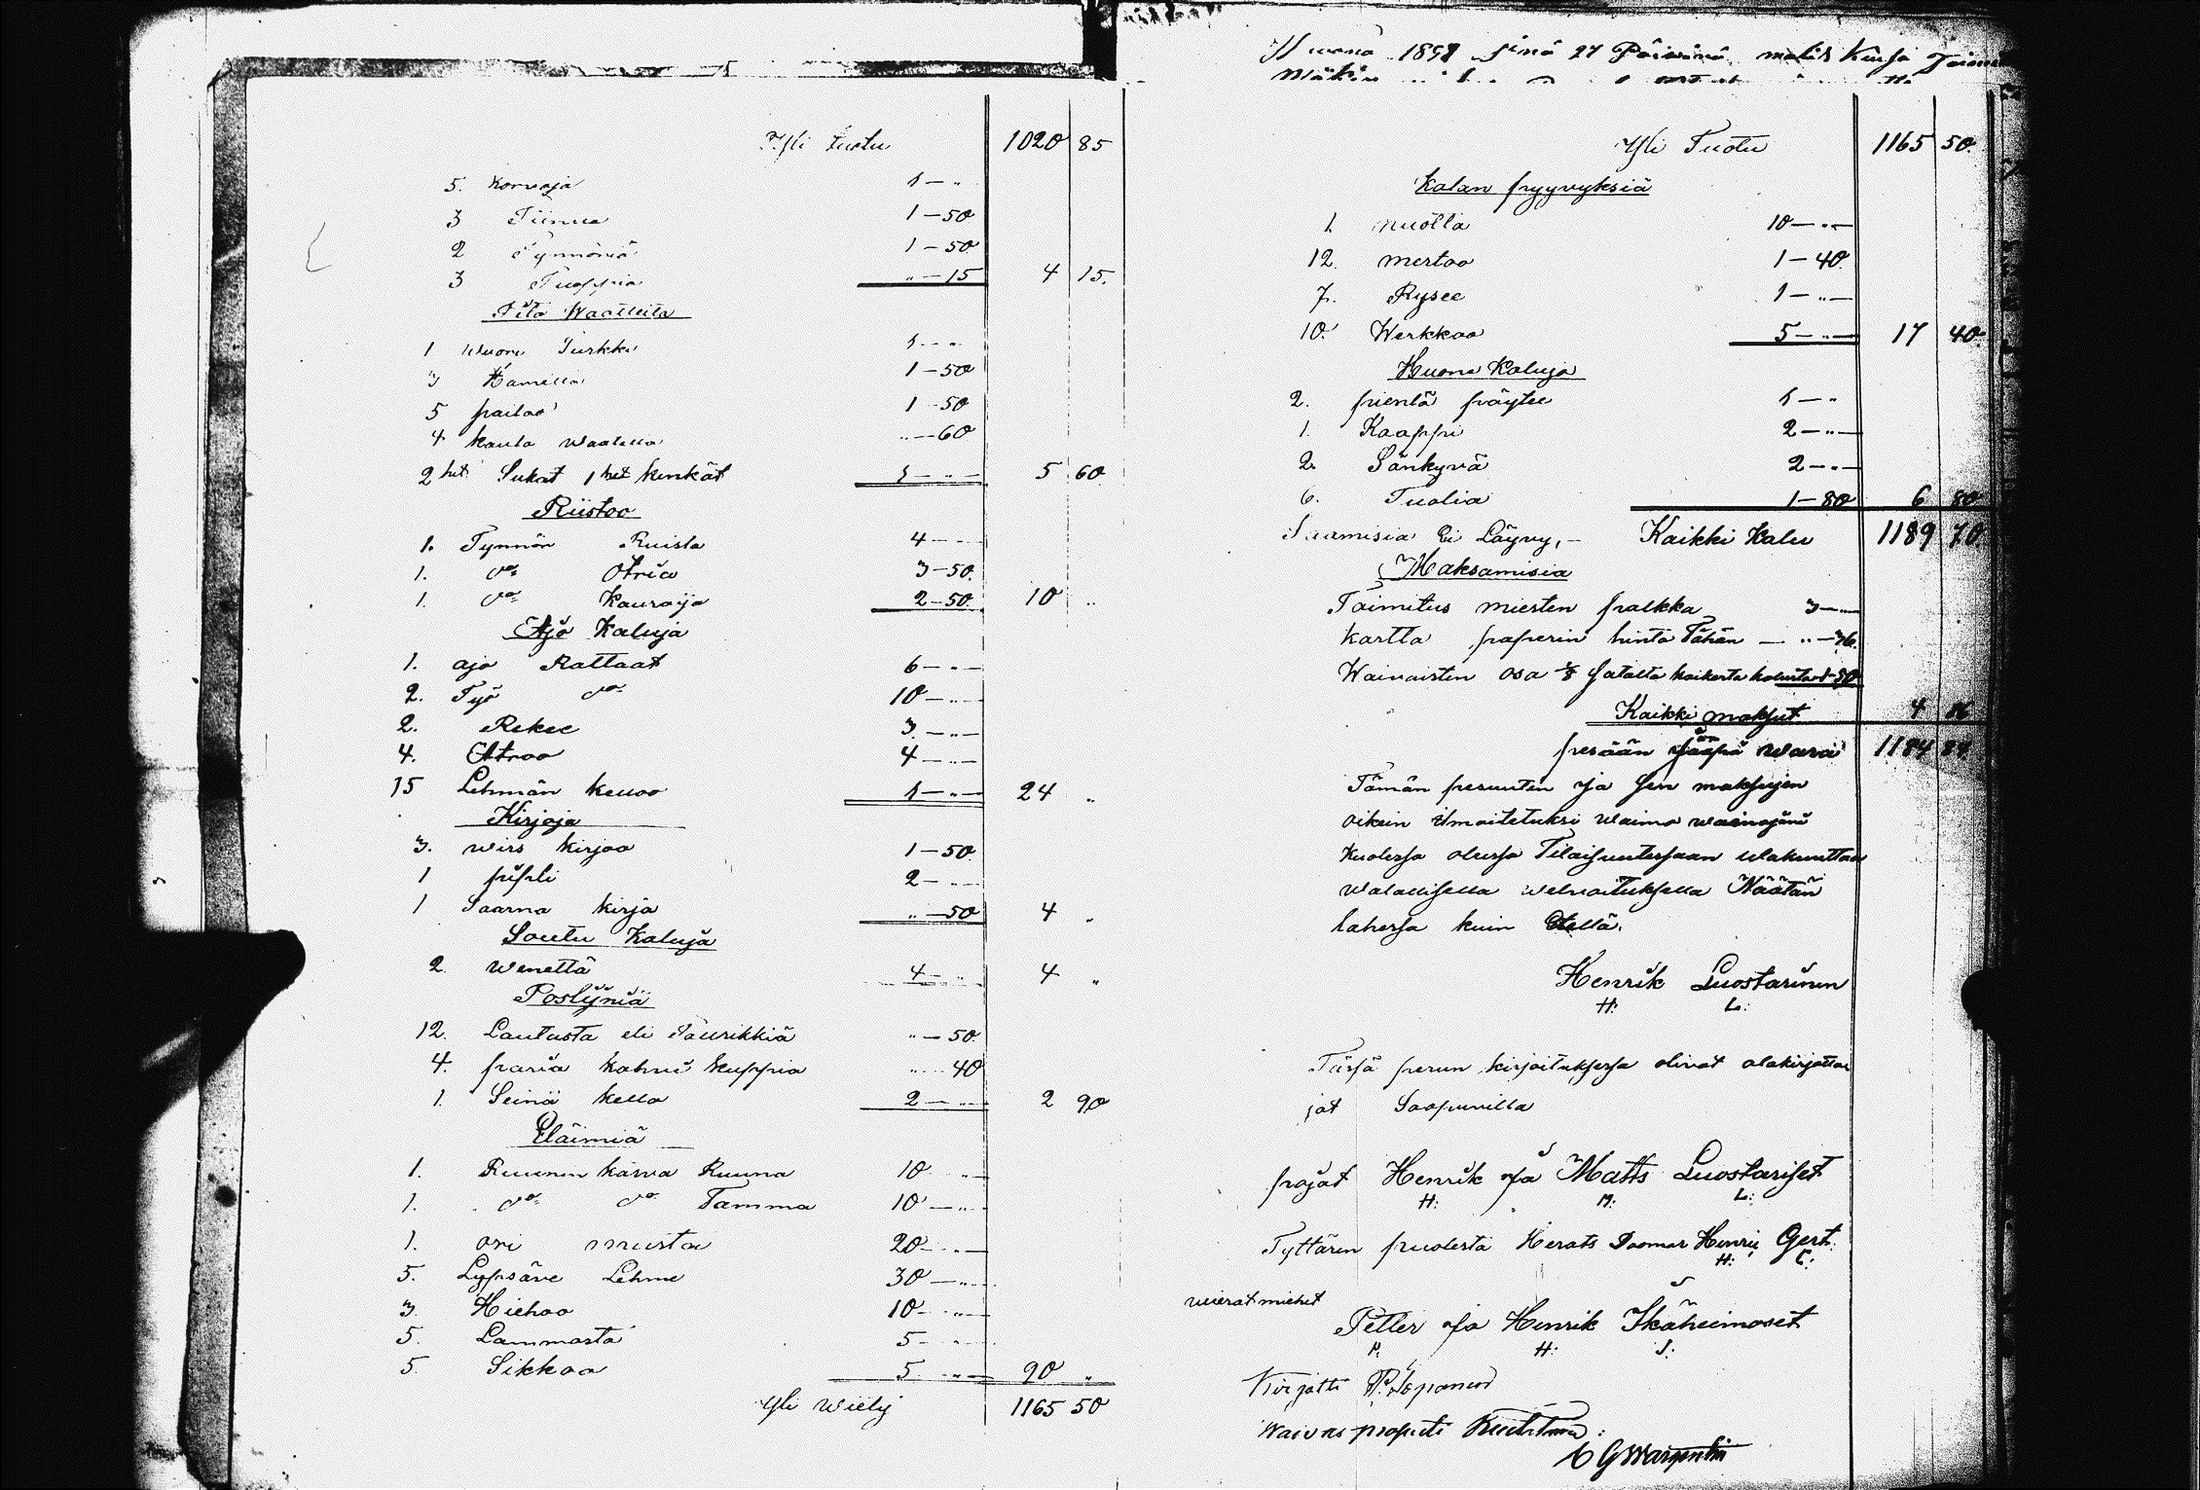 Yli tuotu 1020 85
5. Korvoja 1 — "
3 Tiinua 1 — 50
2 Tynnöriä 1 — 50
3 Tuoppia " — 15 4 15.
Pito Waatteita
1 Wuori Turkki 1 — "
3 Hametta 1 — 50
5 paitaa 1 — 50
4 kaula waatetta " — 60
2 het Sukat 1 het kenkät 1 — " 5 60
Riistoo
1. Tynnön Ruista 4 — "
1. do Otria 3 — 50.
1. do Kauroija 2 — 50 10 "
Ajo Kaluja
1. ajo Rattaat 6 — " —
2. Työ do 10 — " —
2. Rekee 3. — " —
4. Atroo 4 — " —
15 Lehmän kelloo 1 — " — 24 "
Kirjoja
3. wirs kirjoo 1 — 50
1 pipli 2 — "
1 Saarna kirja " — 50 4 "
Soutu Kaluja
2 Wenettä 4 — " 4 "
Poslyniä
12. Lautasta eli Taurikkiä " — 50.
4. paria kahvi kuppia " 40
1. Seinä kello 2 — " — 2 90
Eläimiä
1. Ruunin karva Ruuna 10 " —
1. do do Tamma 10 — " —
1. ori musta 20 — " —
5. Lypsäve Lehme 30 — " —
3. Hiehoo 10 — " —
5. Lammasta 5 — "
5 Sikkoo 5 " — 90 "
Yli wiety 1165 50
Wuona 1858 sinä 27 Päivänä
Yli Tuotu 1165 50.
Kalan pyyvyksiä
1. nuotta 10 — " —
12. mertoo 1 — 40.
7. Rysee 1 — " —
10. Werkkoo 5 — " — 17 40.
Huone Kaluja
2. pientä pöytee 1 — "
1. Kaappi 2 — " —
2. Sänkyvä 2 — " —
6. Tuolia 1 — 80 6 80
Saamisia Ei Löyvy, — Kaikki Kalu 1189 70.
Maksamisia
Toimitus miesten palkka 3 — " —
kartta paperin hinta Tähän — " — 36.
Waivaisten osa 1/8 Satalta kaikesta kalusta 1 — 50
Kaikki maksut 4 86
pesään jääpä wara 1184 84.
Tämän pesuuten ja sen maksujen
oikein ilmoitetuksi waimo wainajani
kuolessa olessa Tilaisuutessaan wakuuttaa
walallisella welvoituksella Näätän
lahessa kuin Etellä.
Henrik Luostarinen
H: L:
Tässä perun kirjoituksessa olivat alakirjottaa
jat Saapuvilla
pojat Henrik ja Matts Luostariset
H: M: L:
Tyttären puolesta Herats Doomar Henric Gert.
H: C:
vierat miehet
Petter ja Henrik Ikäheimoset
P: H: I:
Kirjotti P. Leponen
Waivas propeti
C G Wargentin